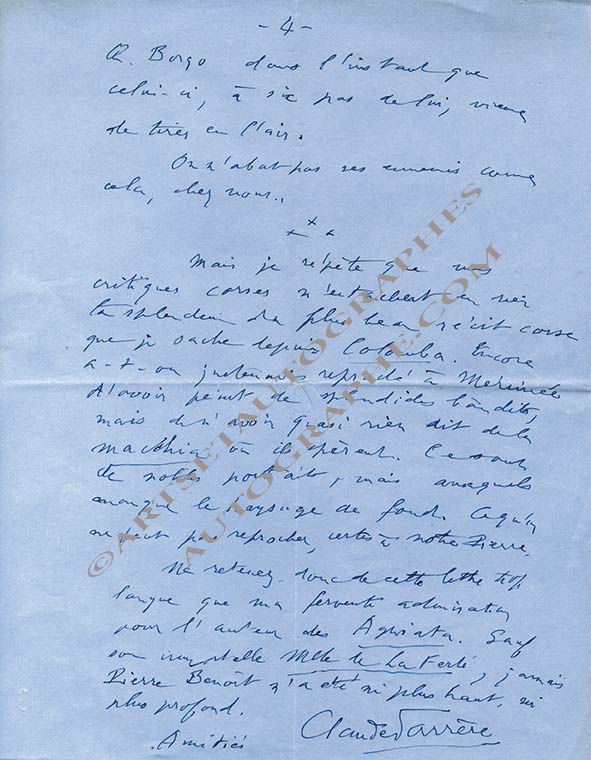 - 4 -
Q. Borgo dans l'instant que
celui-ci, à six pas de lui, vient
de tirer en l'air.
On n'abat pas ses ennemis comme
cela, chez nous..
Mais je répète que mes
critiques corses n'entachent en rien
la splendeur du plus beau récit corse
que je sache depuis Colomba. Encore
a-t-on justement reproché à Mérimée
d'avoir peint de splendides bandits,
mais de n'avoir quasi rien dit de la
macchia où ils opèrent. Ce sont
de nobles portraits, mais auxquels
manque le paysage de fond. Ce qu'on
ne peut pas reprocher, certes à notre Pierre.
Ne retenez donc de cette lettre trop
longue que ma fervente admiration
pour l'auteur des Agriata. Sauf
son immortelle Mlle de La Ferté, jamais
Pierre Benoît n'a été ni plus haut, ni
plus profond.
Amitiés
Claude Farrère
©ARTSETAUTOGRAPHES
AUTOGRAPHE.COM